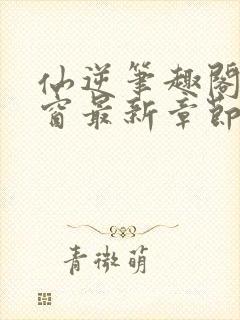 仙逆笔趣阁
窗最新章节
青微萌